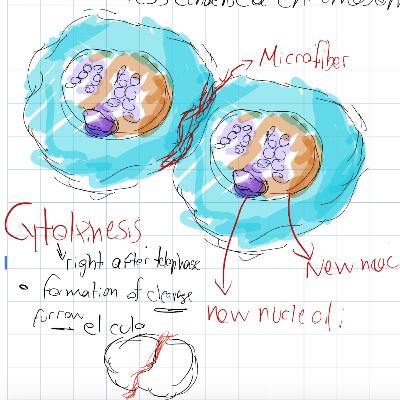 less condensed chromosom
Microfiber
Cytokinesis
right after telophase
New nuc
formation of cleavage
new nucleoli
furrow → el culo